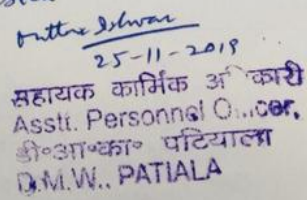 25-11-2019
सहायक कार्मिक अ कारी
Asstt. Personnel O...cer,
डी०आ०का० पटियाला
D.M.W., PATIALA